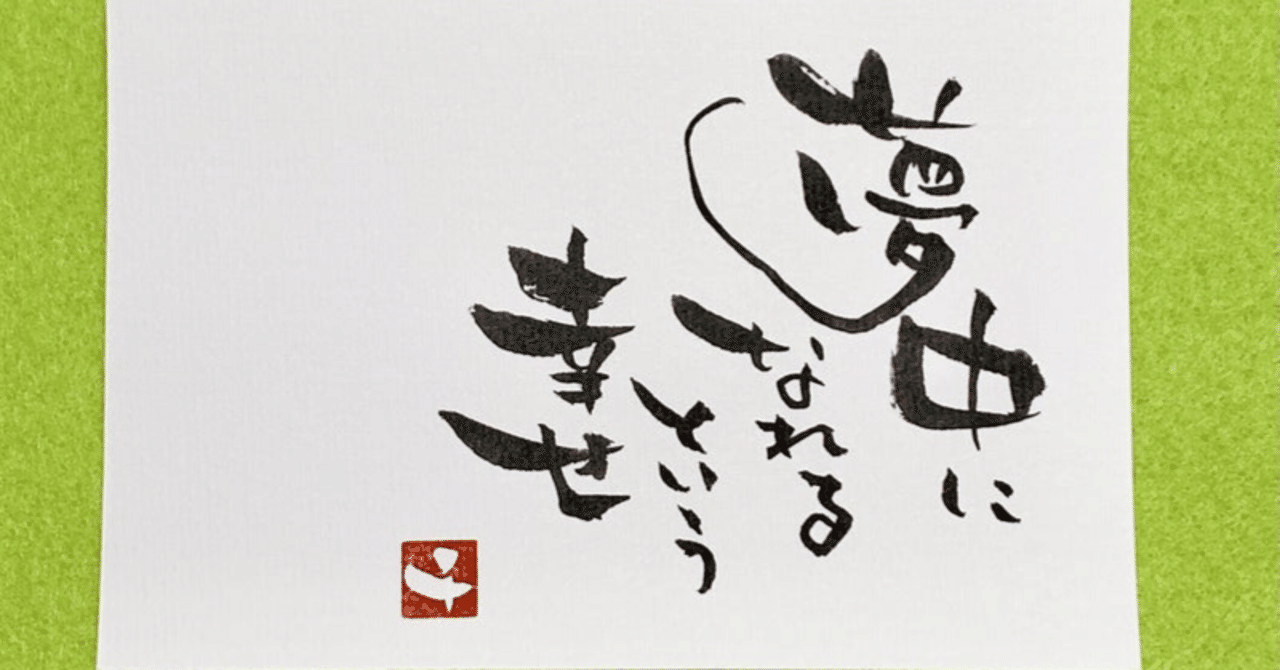 夢中に
なれる
という
幸せ